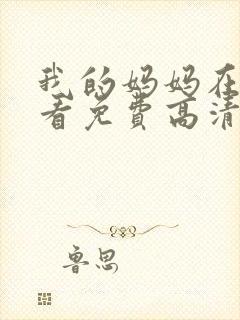 我的妈妈在
看免费高清
鲁思